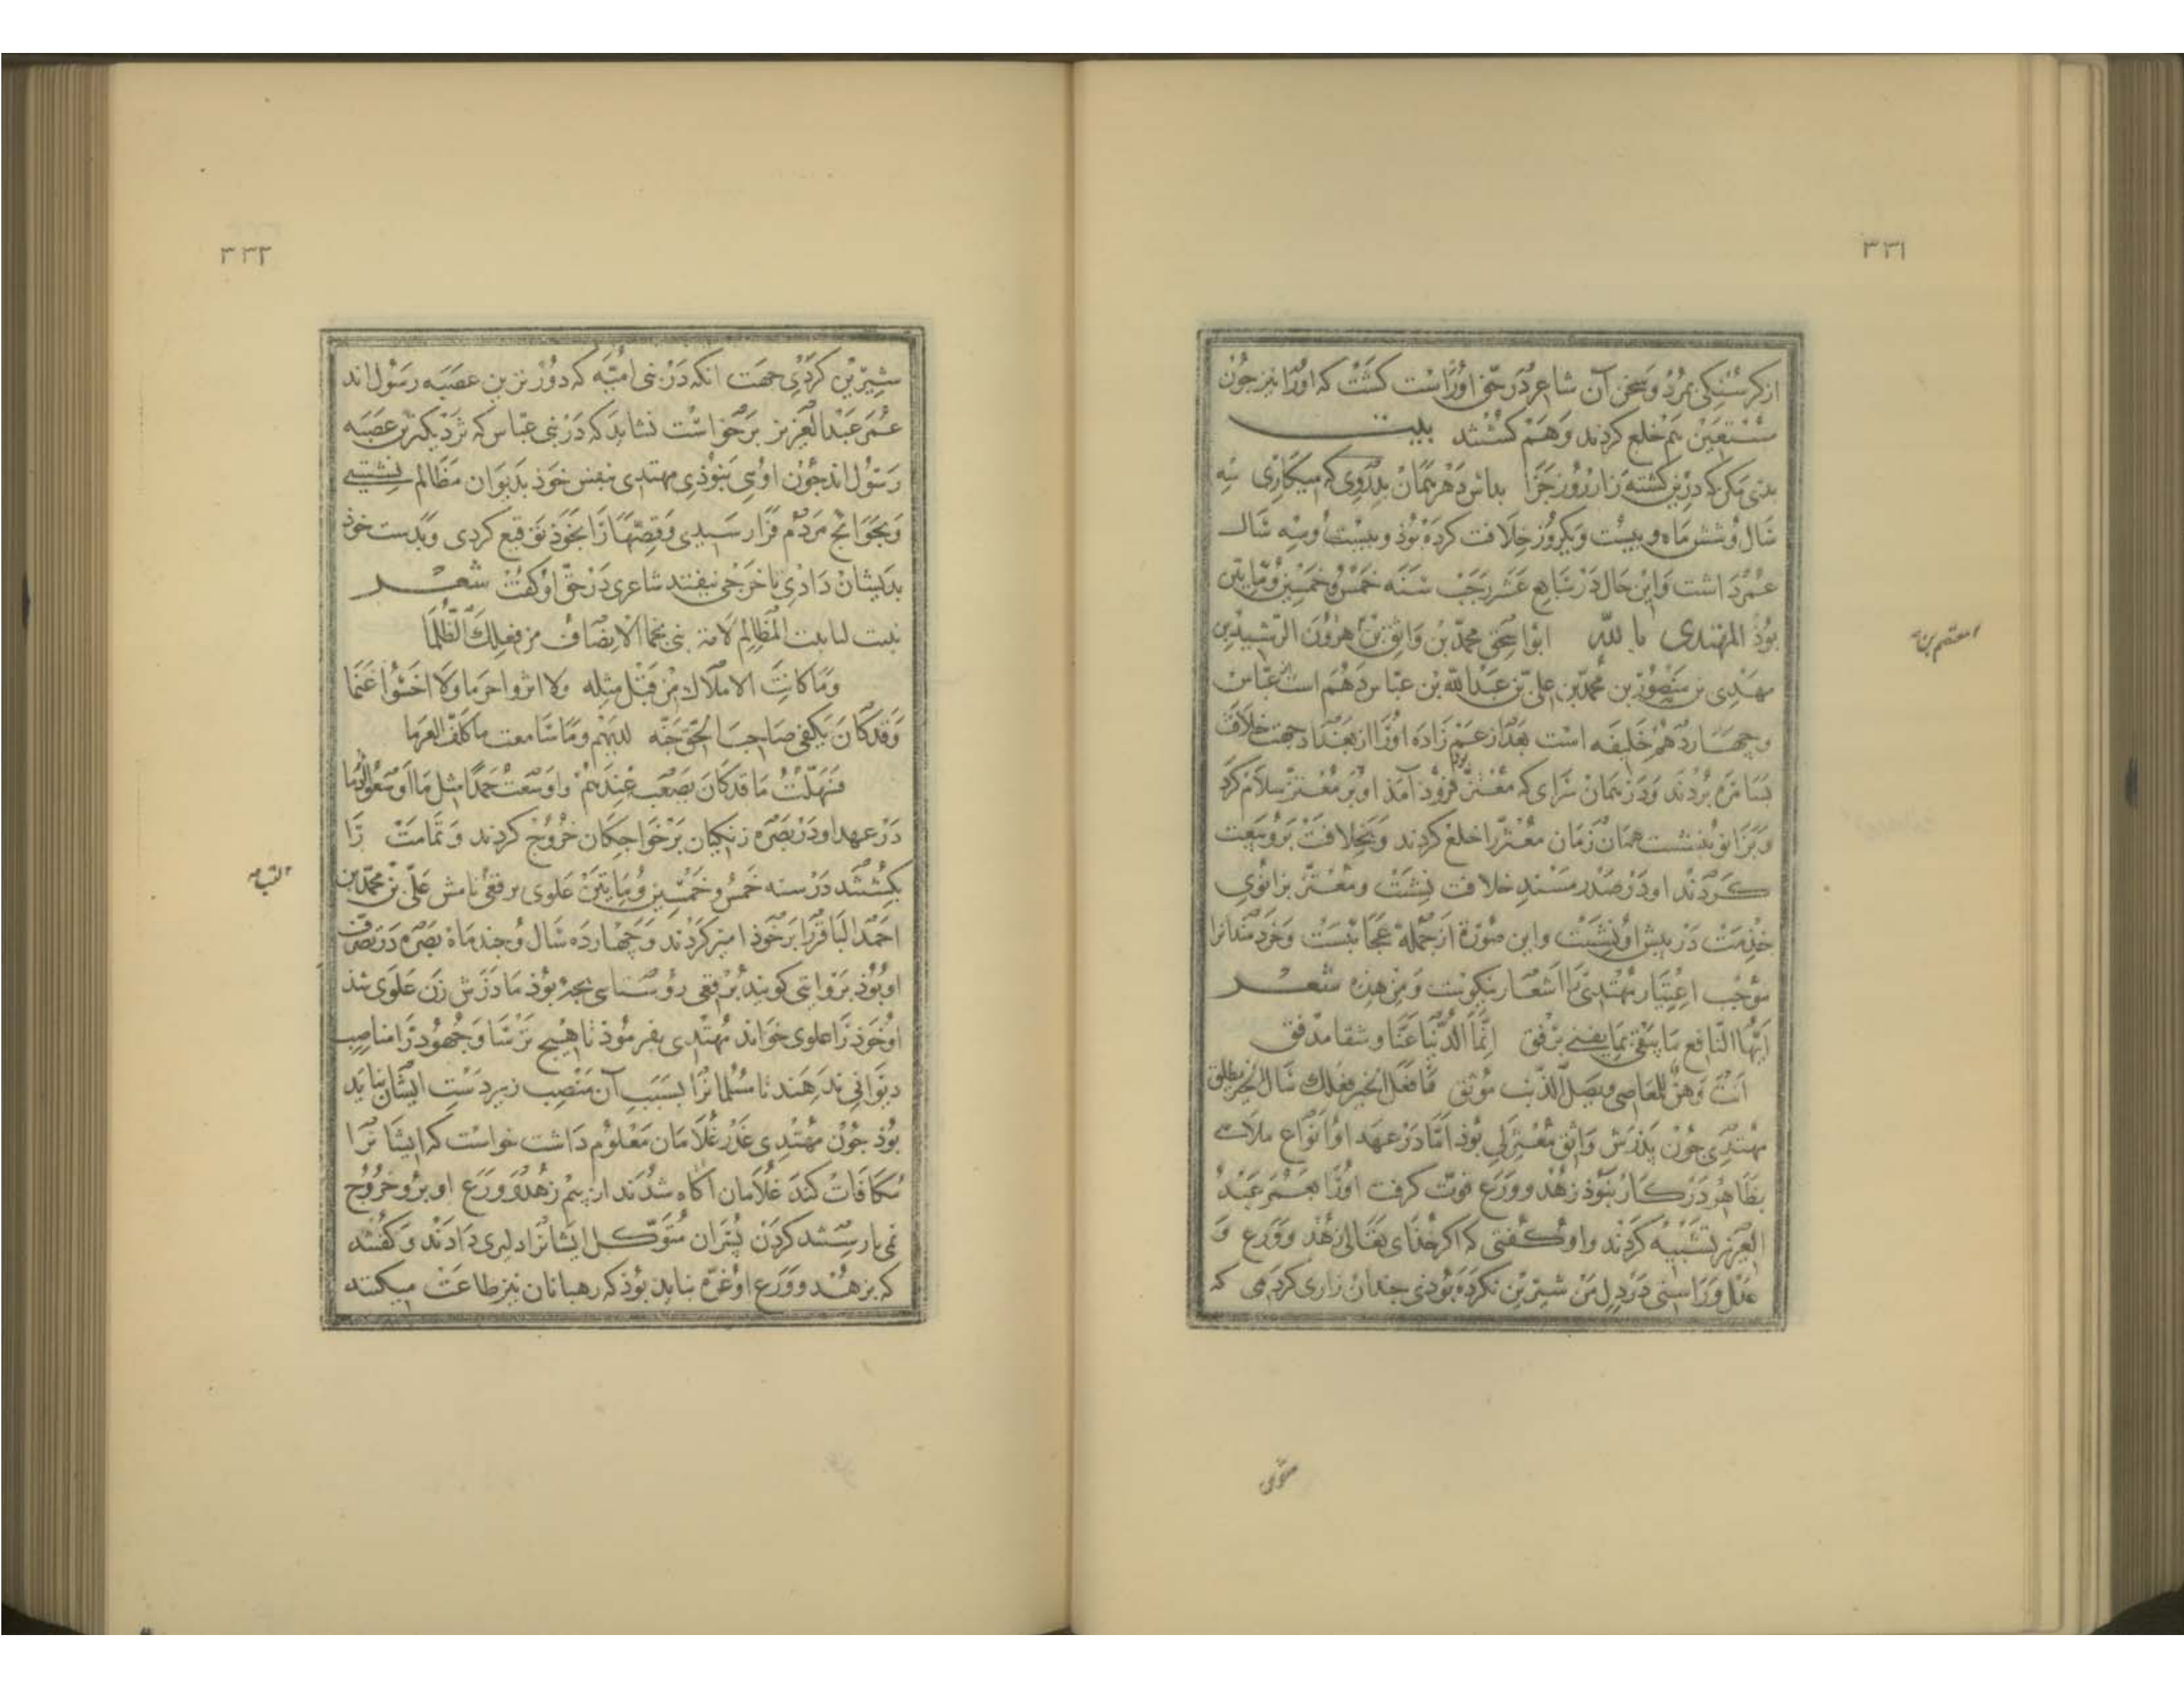 ۳۳۱
از کرسنکی بمرد و سخن آن شاعر در حق او راست کشت که او را نیز جون
مستعین هم خلع کردند و هم کشتند بیت
بدی مکن که درین کشته زار زود جزا بداس دهر همان بدروی که میکاری سه
سال و شش ماه و بیست و یکروز خلافت کرده بوذ و بیست و سه سال
عمر داشت و این حال در سابع عشر رجب سنه خمس و خمسین و مایتین
بوذ المهتدی بالله ابو اسحق محمد بن واثق بن هرون الرشید بن
معتصم بن
مهدی بن منصور بن محمد بن علی بن عبدالله بن عباس دهم است عباس
و چهاردهم خلیفه است بعد از عم زاده او را از بغداد جهت خلافت
بسامره بردند و در همان سرای که معتز فروذ آمذ او بر معتز سلام کرد
و بزانو بنشست همان زمان معتز را خلع کردند و بخلافت برو بیعت
کردند او در صدر مسند خلافت نشست و معتز بزانوی
خذمت در پیش او نشست و این صورة از جمله عجایبست و خردمندانرا
موجب اعتبار مهتدی را اشعار نیکوست و من هذه شعر
ایها النافع ما یبقی بما یفنی برفق انما الدنیا عنا و شقا مدفق
انت وهن للمعاصی وبصل الذنب موثق فافعل الخیر فعلك سال الخیر مطلق
مهتدی جون پدرش واثق معتزلی بوذ اما در عهد او انواع ملاهی
بظاهر در کار نبوذ زهد و ورع قوت کرفت او را بعمر عبد
العزیز تشبیه کردند و او کفتی که اکر خذای تعالی زهد و ورع و
عدل و راستی در دل من شیرین نکرده بوذی جندان زاری کردمی که
متوی
۳۳۲
شیرین کردی جهت انکه در بنی امیه که دورترین عصبه رسول اند
عمر عبدالعزیز برخواست نشاید که در بنی عباس که نزدیکترین عصبه
رسول اند جون اویی نبوذی مهتدی بنفس خوذ بدیوان مظالم نشستی
و بحوایج مردم فرا رسیدی و قصها را بخوذ توقیع کردی و بدست خوذ
بدیشان دادی تا خرجی نیفتد شاعری در حق او کفت شعر
المظالم الانصاف من فعلك الظلما
وما کانت الاملاك من قبل مثله
وقد کان یکفی صاحب الحق لدیهم وما
فسهلت ما قد کان یصعب عندهم واوسعت حمدا مثل ما اوسعوا الذما
در عهد او در بصره زنکیان بر خواجکان خروج کردند و تمامت را
بکشتند در سنه خمس و خمسین و مایتین علوی برقعی نامش علی بن محمد بن
احمد الباقر را بر خوذ امیر کردند و چهارده سال و جند ماه بصره در تصرف
او بوذ بروایتی کویند برقعی روستایی بجه بوذ ماذرش زن علوی شذ
او خوذ را علوی خواند مهتدی بفرموذ تا هیج ترسا و جهود را مناصب
دیوانی ندهند تا مسلمانرا بسبب آن منصب زیر دست ایشان نباید
بوذ جون مهتدی غدر غلامان معلوم داشت خواست که ایشانرا
مکافات کند غلامان آکاه شدند از بیم زهد و ورع او برو خروج
نمی یارستند کردن پسران متوکل ایشانرا دلیری دادند و کفتند
که بزهد و ورع او غره نباید بوذ که رهبانان نیز طاعت میکنند